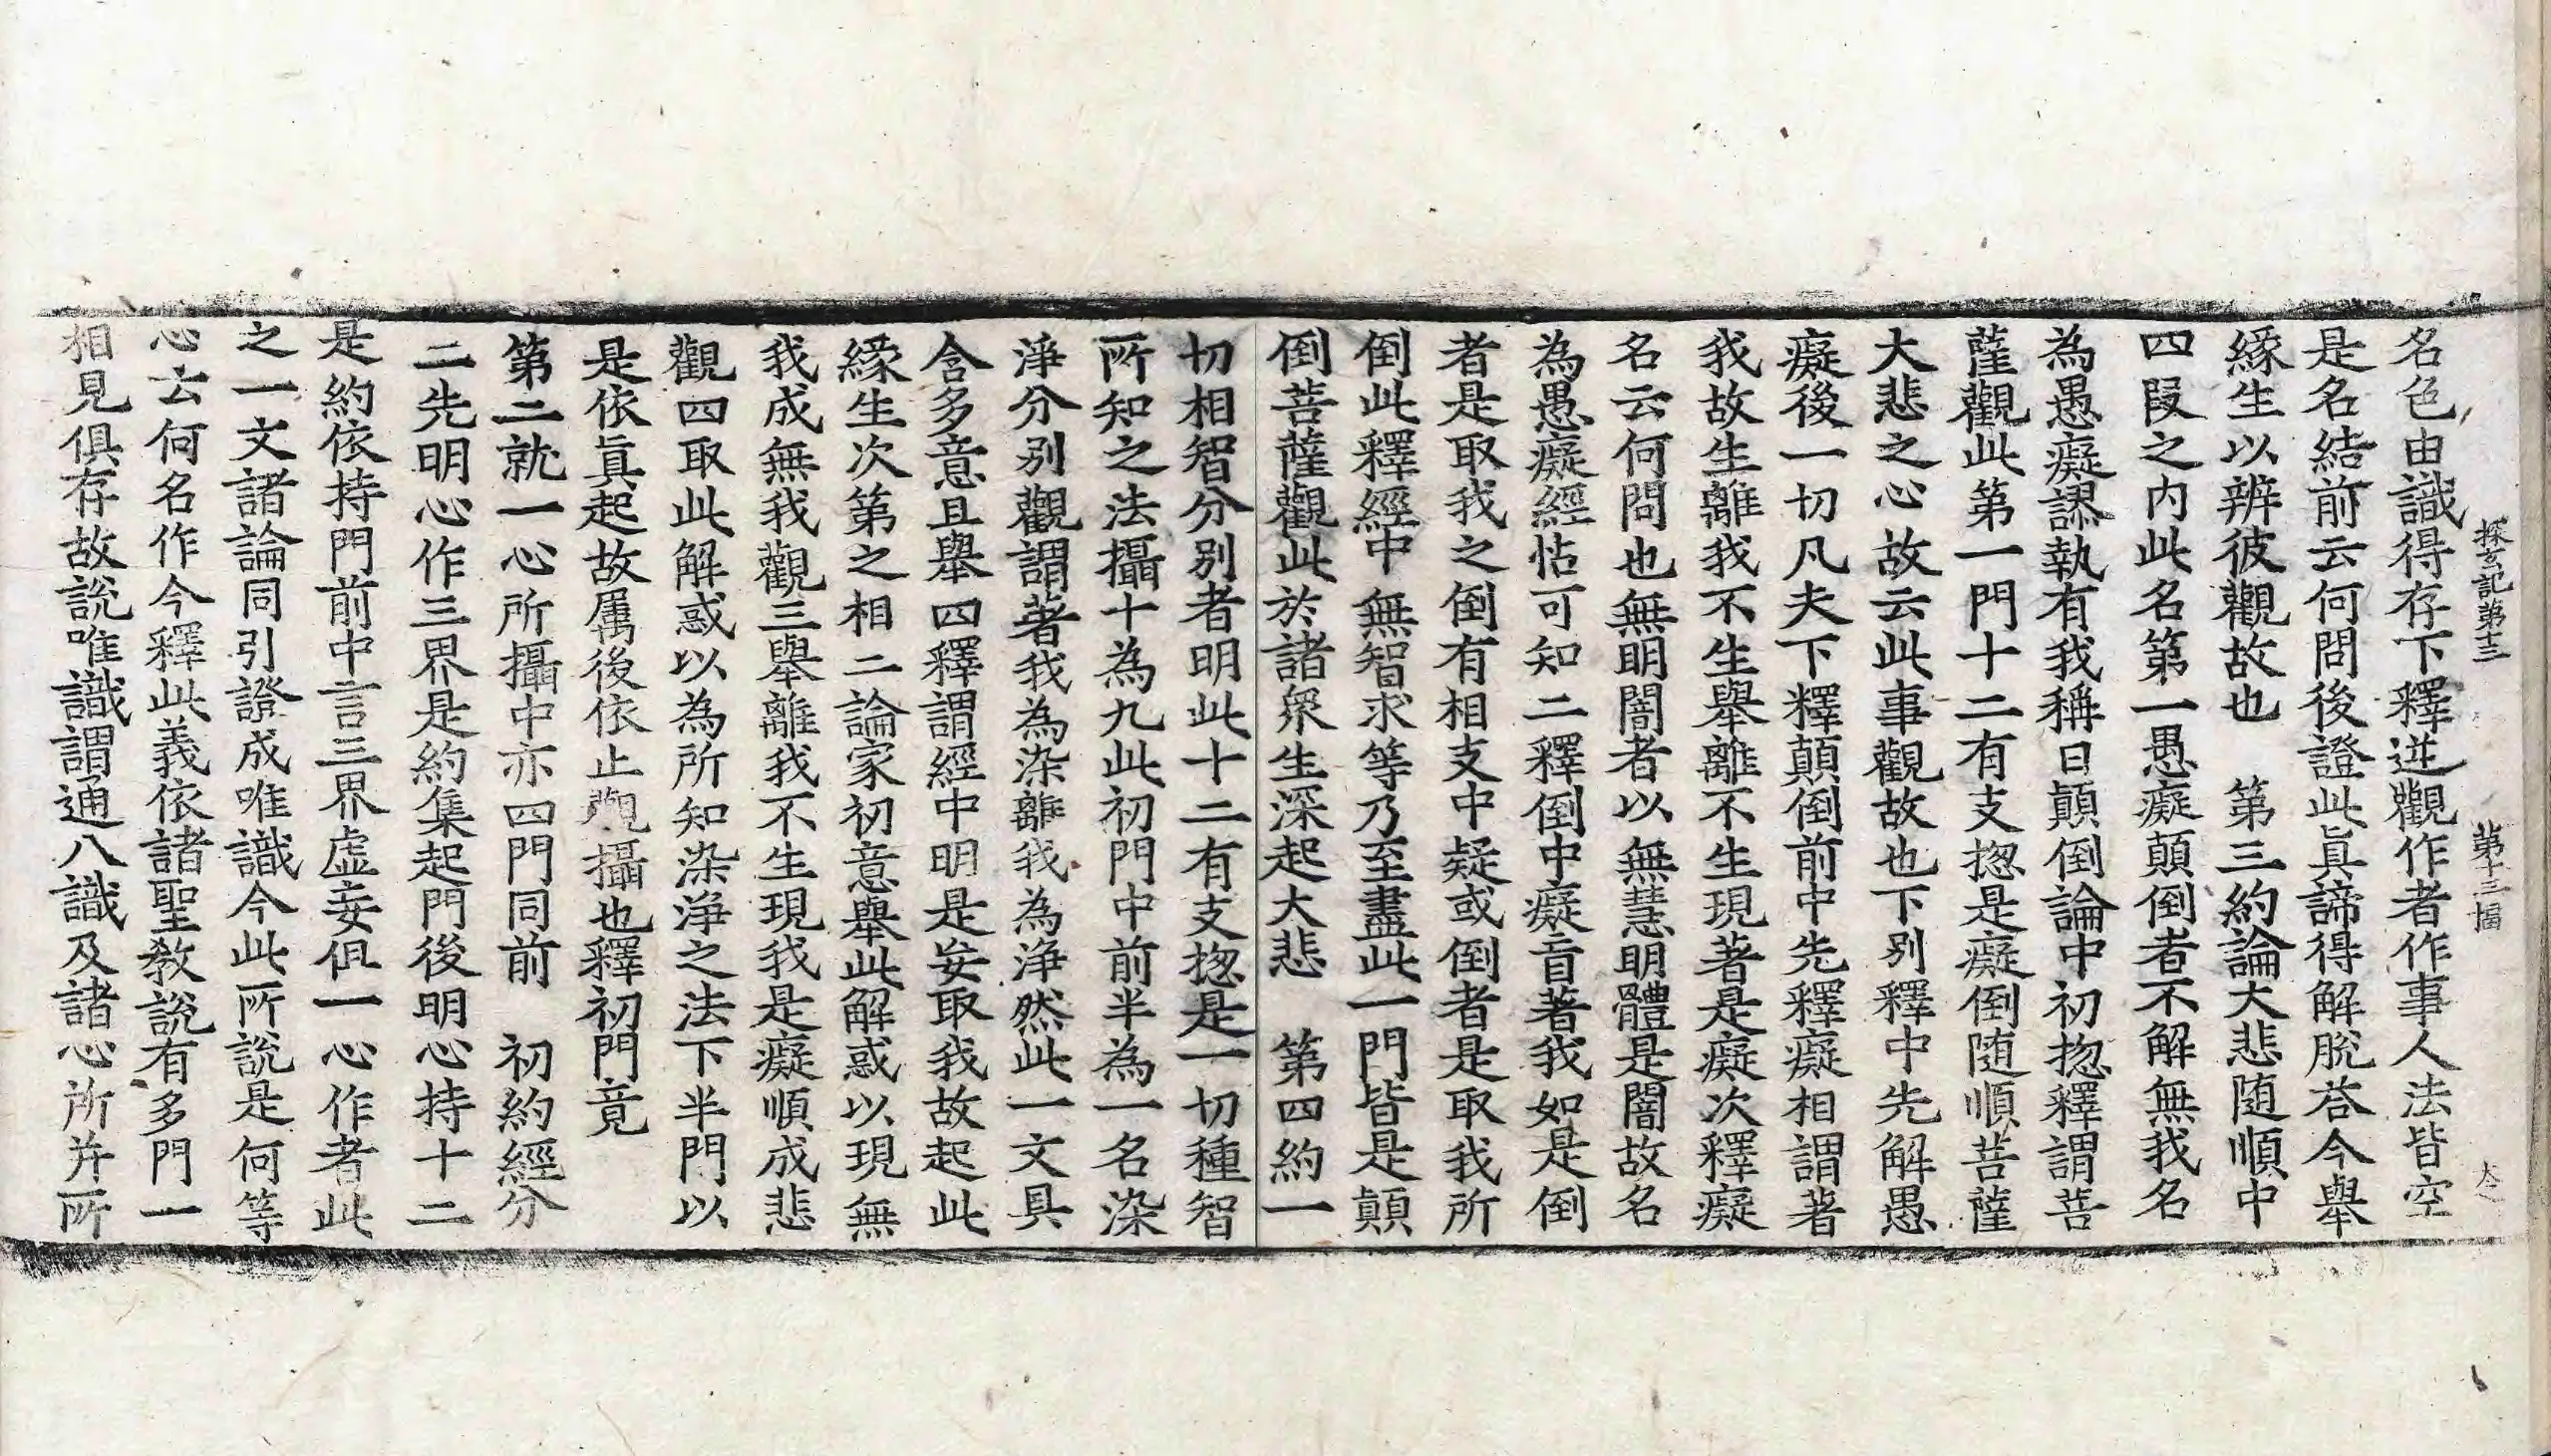 探玄記第十三 第十三幅 大
名色由識得存下釋逆觀作者作事人法皆空
是名結前云何問後證此眞諦得解脫荅今舉
緣生以辨彼觀故也 第三約論大悲随順中
四段之内此名第一愚癡顛倒者不解無我名
為愚癡謬執有我稱曰顛倒論中初揔釋謂菩
薩觀此第一門十二有支揔是癡倒随順菩薩
大悲之心故云此事觀故也下別釋中先解愚
癡後一切凡夫下釋顛倒前中先釋癡相謂著
我故生離我不生舉離不生現著是癡次釋癡
名云何問也無明闇者以無慧明體是闇故名
為愚癡經怗可知二釋倒中癡盲著我如是倒
者是取我之倒有相支中疑或倒者是取我所
倒此釋經中無智求等乃至盡此一門皆是顛
倒菩薩觀此於諸衆生深起大悲 第四約一
切相智分別者明此十二有支揔是一切種智
所知之法攝十為九此初門中前半為一名染
淨分別觀謂著我為染離我為淨然此一文具
含多意且舉四釋謂經中明是妄取我故起此
緣生次第之相二論家初意舉此解惑以現無
我成無我觀三舉離我不生現我是癡順成悲
觀四取此解惑以為所知染淨之法下半門以
是依眞起故屬後依止觀攝也釋初門竟
第二就一心所攝中亦四門同前 初約經分
二先明心作三界是約集起門後明心持十二
是約依持門前中言三界虛妄但一心作者此
之一文諸論同引證成唯識今此所說是何等
心云何名作今釋此義依諸聖教說有多門一
相見俱存故說唯識謂通八識及諸心所并所